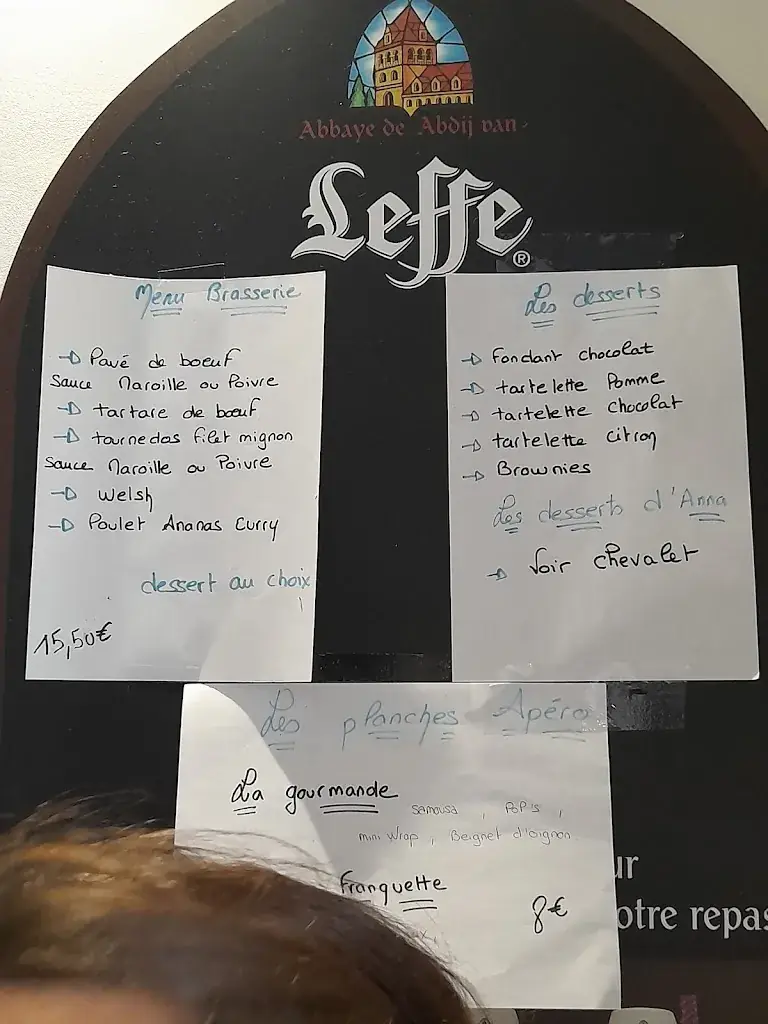 Abbaye de Abdij van
Leffe®
Menu Brasserie
Pavé de boeuf
Sauce Maroille ou Poivre
tartare de bœuf
tournedos filet mignon
Sauce Maroille ou Poivre
Welsh
Poulet Ananas Curry
dessert au choix
15,50€
Les desserts
fondant chocolat
tartelette Pomme
tartelette chocolat
tartelette citron
Brownies
Les desserts d'Anna
Voir chevalet
Les planches Apéro
La gourmande
Samousa, POP's,
mini Wrap, Beignet d'oignon
franquette
8€
ur
otre repas